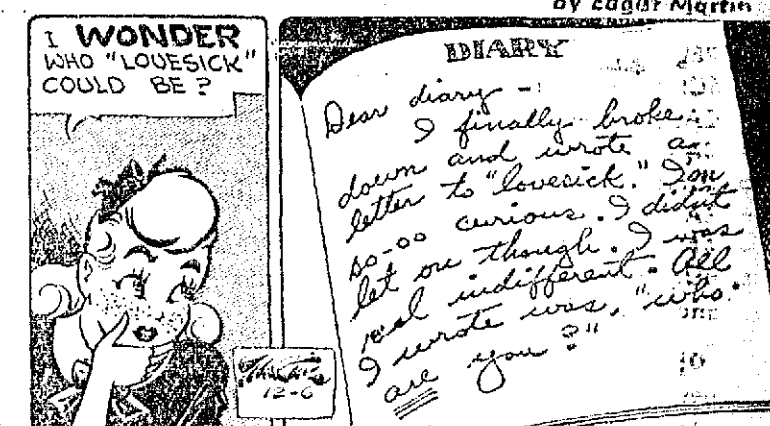 by Edgar Martin
I WONDER
WHO "LOVESICK"
COULD BE?
DIARY
Dear diary -
I finally broke
down and wrote a
letter to "lovesick." I'm
so-oo curious. I didn't
let on though. I was
real indifferent. All
I wrote was, "who
are you?"
12-6